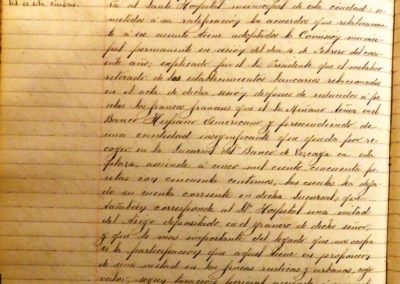 de esta ciudad
ria al Santo Hospital municipal de esta ciudad, so-
metidos á su ratificación los acuerdos que relativamente
á ese asunto tiene adoptados la Comisión munici-
pal permanente en sesión del dia 4 de Febrero del cor-
riente año; explicado por el Sr. Presidente que el metálico
retirado de los establecimientos bancarios relacionados
en el acta de dicha sesión y despues de reducidos á pe-
setas los francos franceses que el Sr. tenia en el
Banco Hispano Americano y prescindiendo de
una cantidad insignificante que queda por re-
coger en la Sucursal del Banco de Vizcaya en esta
plaza, asciende á cinco mil ciento cincuenta pe-
setas con cincuenta centimos, las cuales ha deja-
do en cuenta corriente en dicha Sucursal, que
tambien corresponde al Sto. Hospital una mitad
del trigo depositado en el granero de dicho señor,
y que lo mas importante del legado que nos ocupa
es la participación que aquel tiene en proporcion
de una mitad en las fincas rusticas y urbanas, cuyo
valor, segun tasación pericial